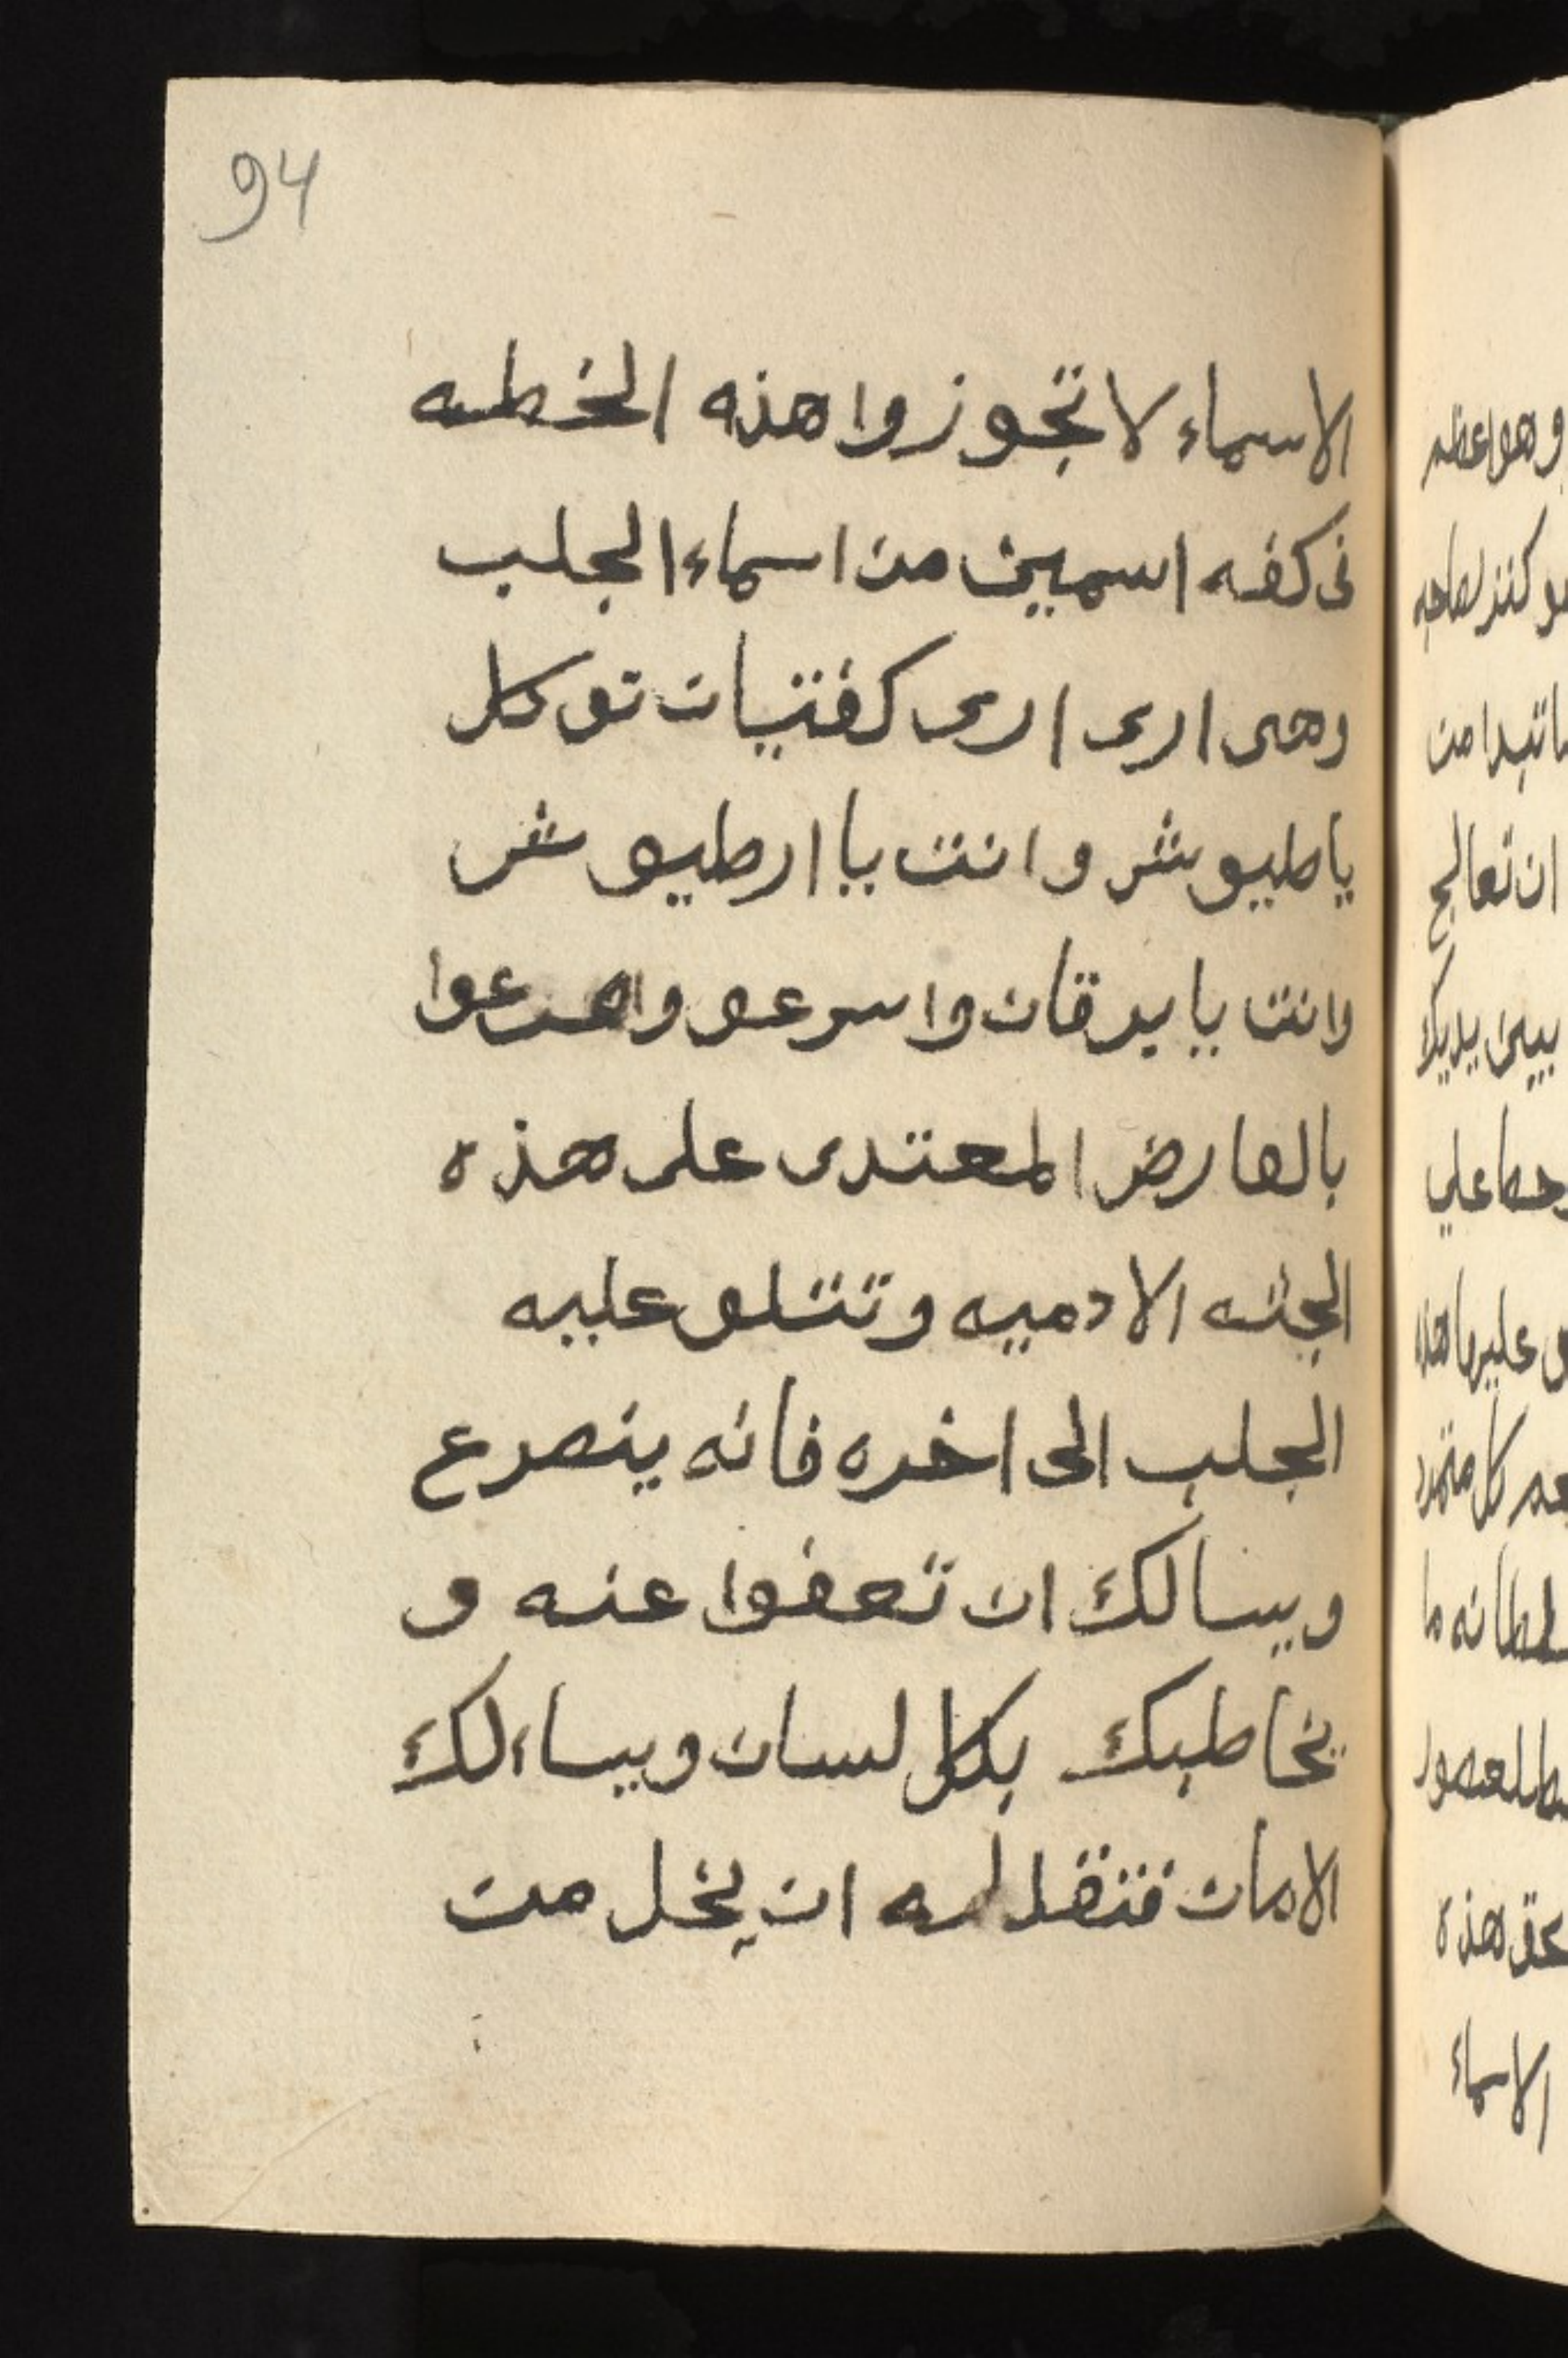 94
الاسماء لا تجوزوا هذه الخطه
فى كفه اسمين من اسماء الجلب
وهى ارى ارى كفتيات توكل
ياطيوش وانت يا ارطيوش
وانت يا يرقان واسرعو واهرعوا
بالعارض المعتدى على هذه
الجثه الادميه وتتلو عليه
الجلب الى اخره فانه ينصرع
ويسالك ان تعفوا عنه و
يخاطبك بكل لسان ويساءلك
الامان فتقل له ان يخل من